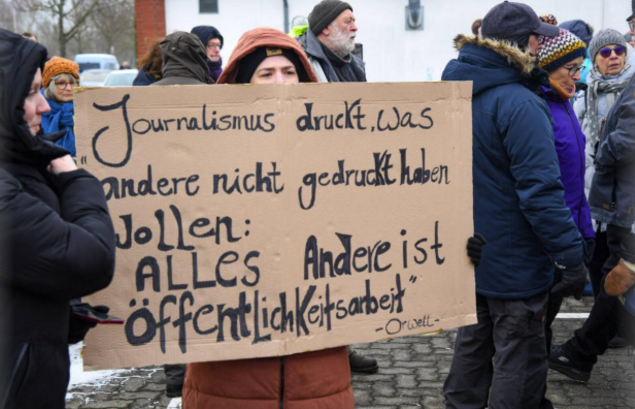 Journalismus druckt, was
„andere nicht gedruckt haben
wollen:
ALLES Andere ist
Öffentlichkeitsarbeit"
-Orwell-